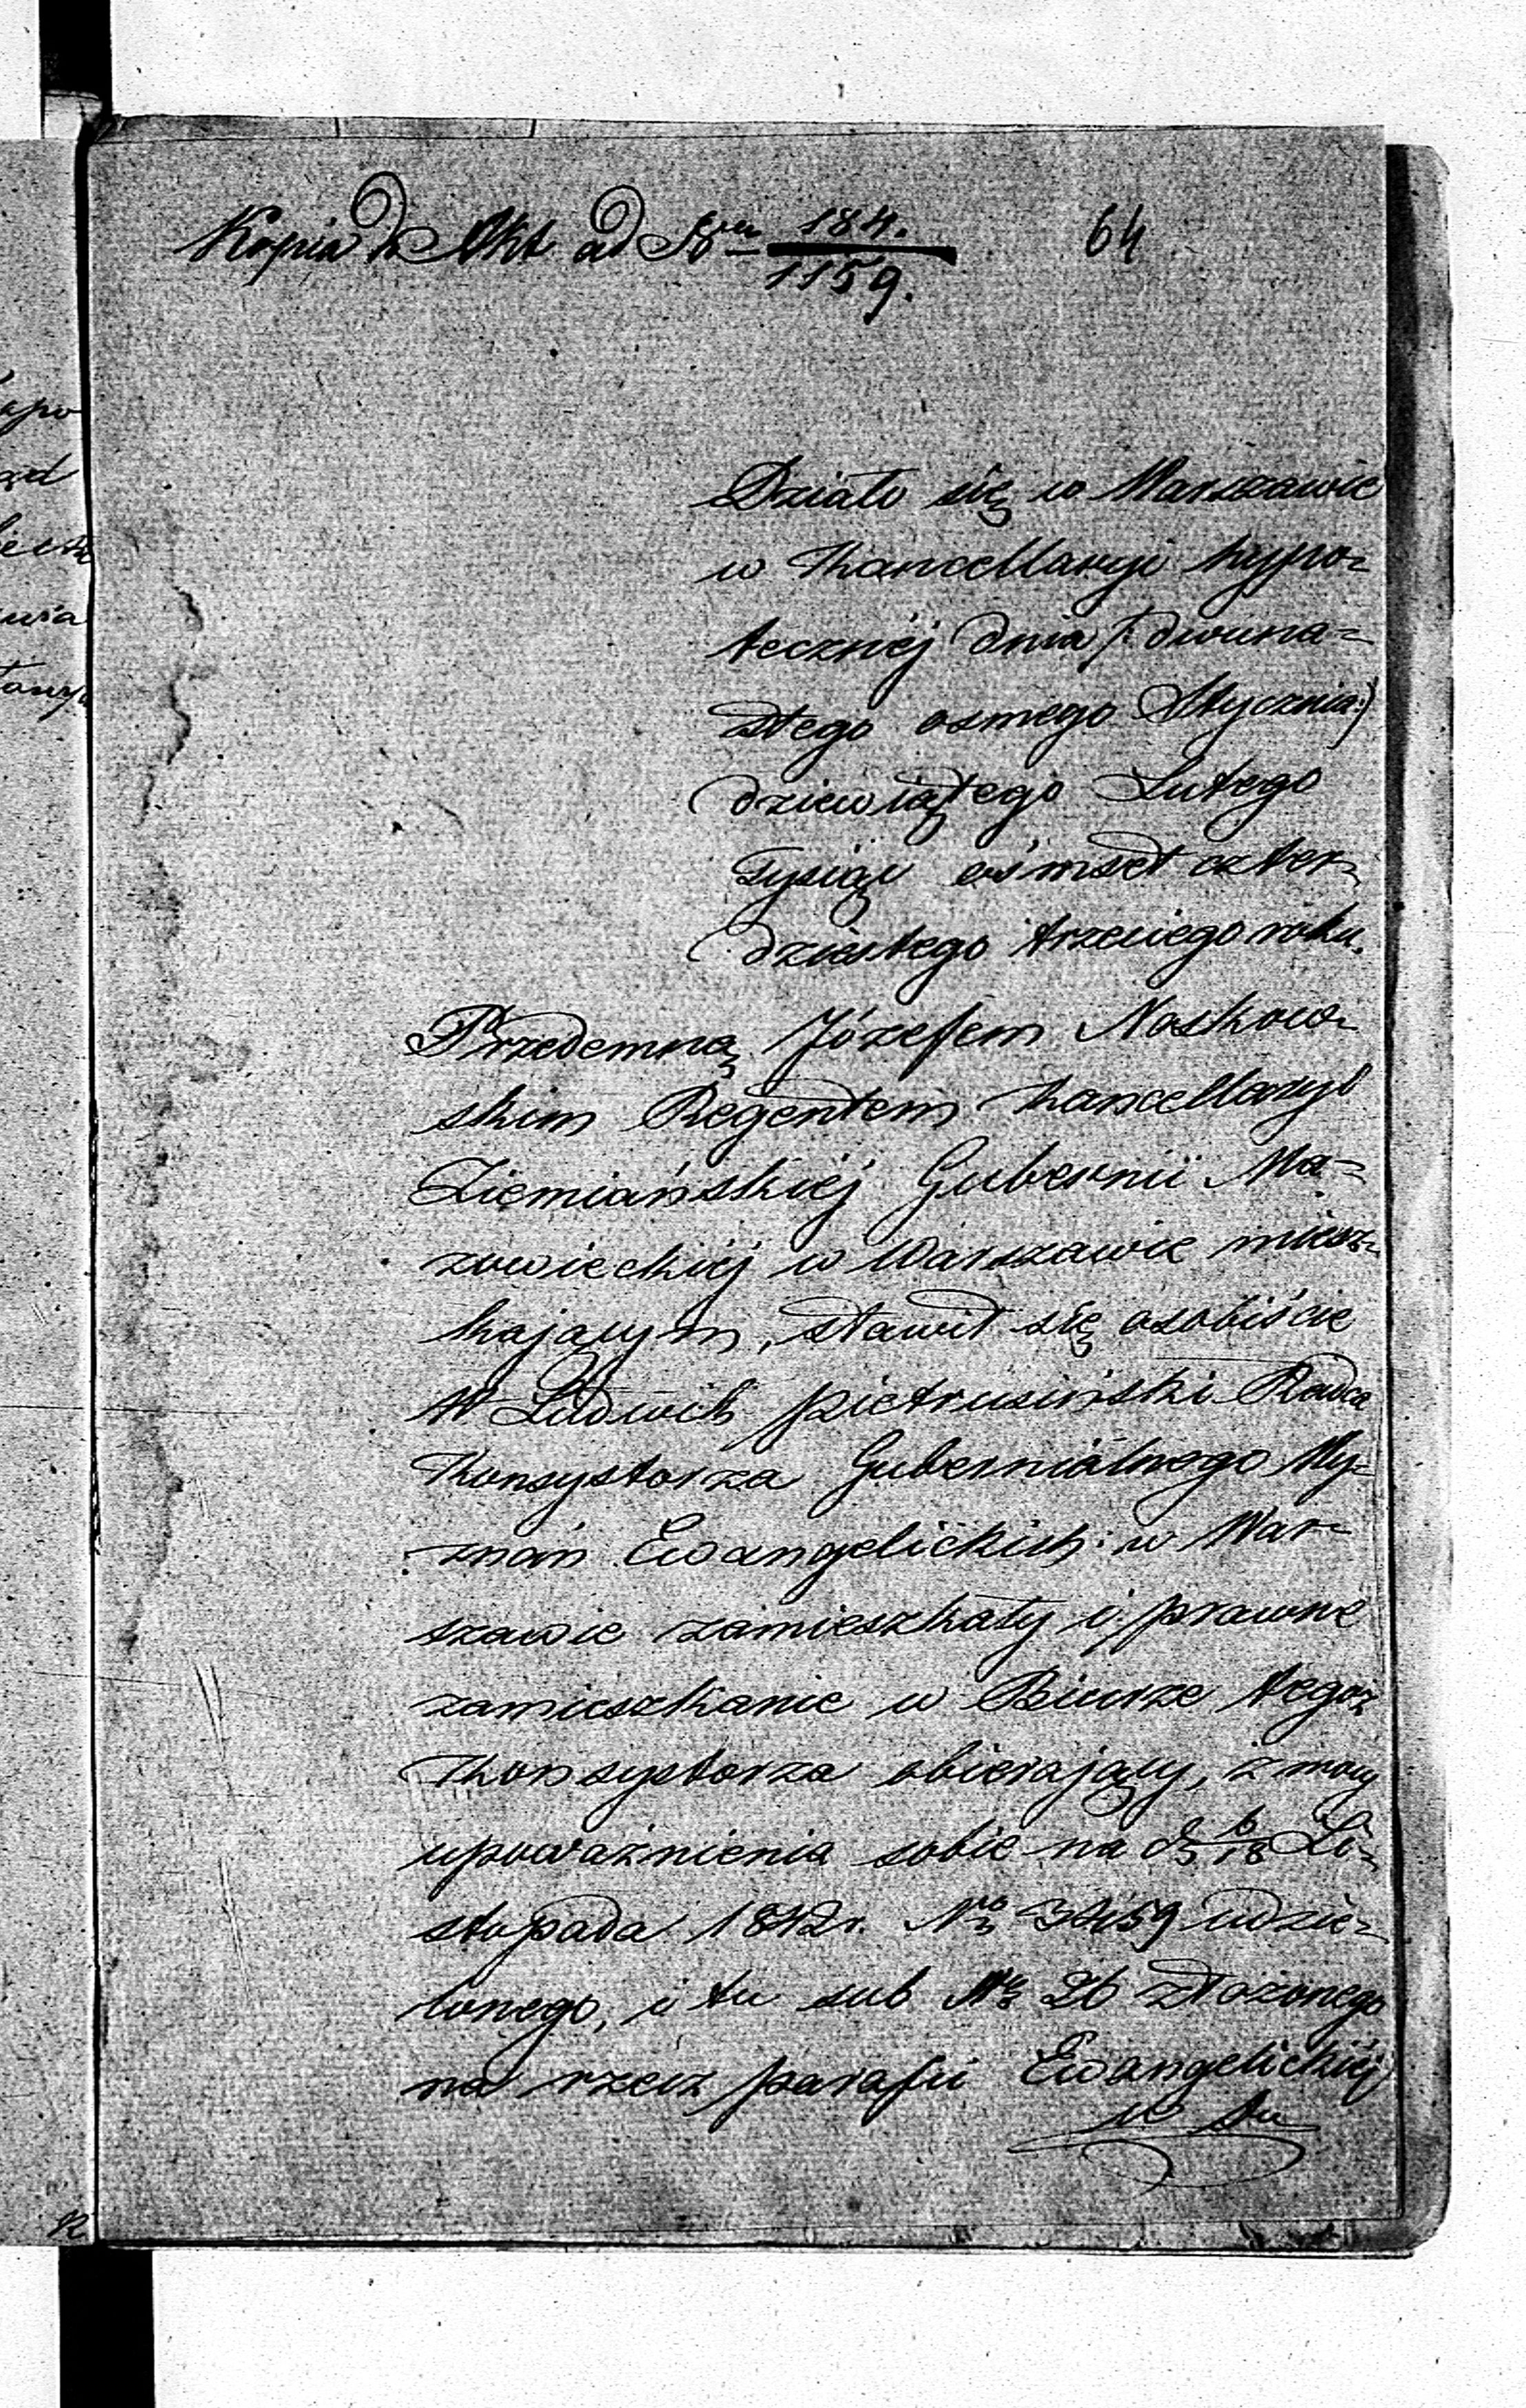 Kopia do Akt ad Nra 184. 64
1159.
Działo się w Warszawie
w Kancellaryi hypo-
tecznéj dnia /: dwuna-
stego osmego Stycznia:)
dziewiątego Lutego
tysiąc ośmset czter-
dziestego trzeciego roku.
Przedemną Józefem Noskow-
skim Regentem Kancellaryi
Ziemiańskiéj Gubernii Ma-
zowieckiéj w Warszawie miesz-
kającym, stawił się osobiście
W Ludwik Pietrusiński Radca
Konsystorza Gubernialnego Wy-
znań Ewangelickich w War-
szawie zamieszkały i prawne
zamieszkanie w Biurze tegoż
Konsystorza obierający, z mocy
upoważnienia sobie na d 6/18 Li-
stopada 1842 r. No 3459 udzie-
lonego, i tu sub No 26 złożonego
na rzecz parafii Ewangelickiéj
apo
ąd
wia